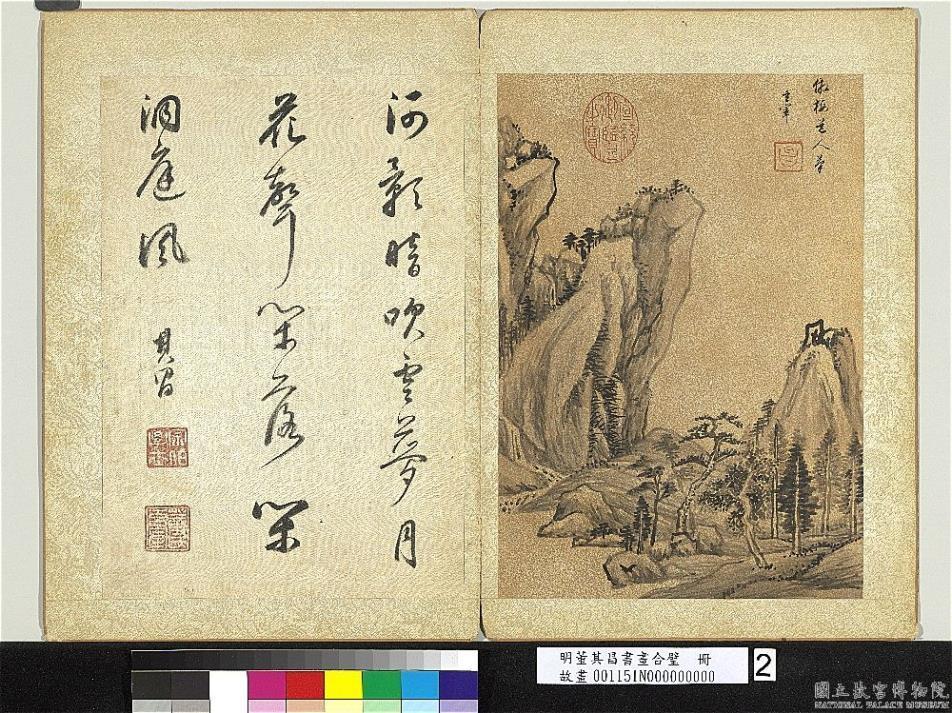 倣梅道人筆
玄宰
河影暗吹雲夢月
花聲閑落閑
洞庭風
其昌
明董其昌書畫合璧 冊
故畫 001151N000000000
2
國立故宮博物院
NATIONAL PALACE MUSEUM